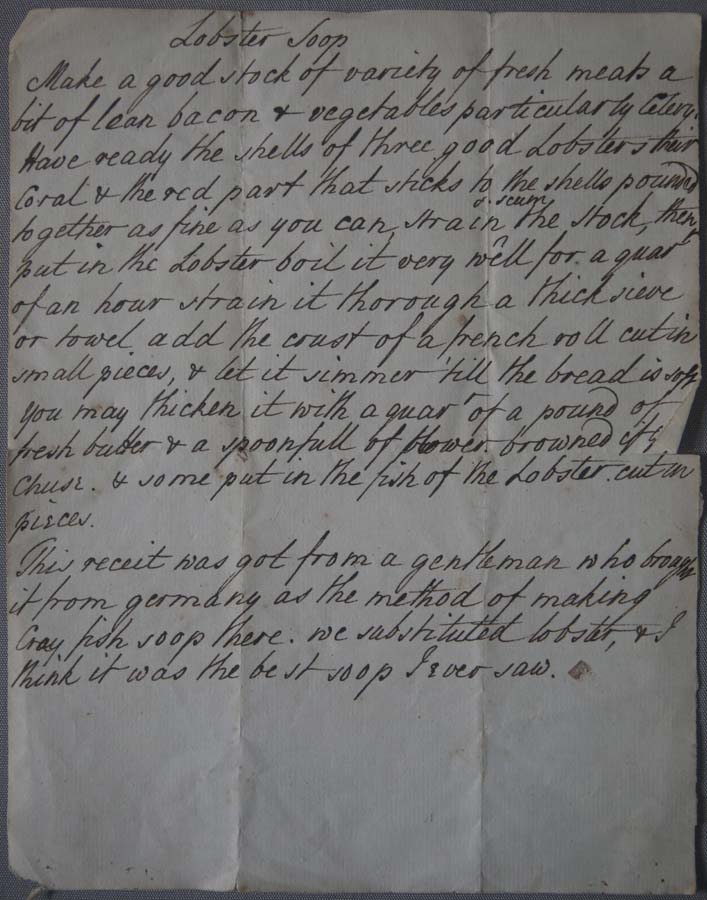 Lobster Soop
Make a good stock of variety of fresh meats a
bit of lean bacon & vegetables particularly Celery.
Have ready the shells of three good Lobsters their
Coral & the red part that sticks to the shells pound
together as fine as you can, strain & scum the stock, then
put in the Lobster boil it very well for a quart
of an hour strain it thorough a thick sieve
or towel add the crust of a french roll cut in
small pieces, & let it simmer 'till the bread is soft
you may thicken it with a quart of a pound of
fresh butter & a spoonfull of flower browned if y
Chuse. & some put in the fish of the Lobster. cut in
pieces.
This receit was got from a gentleman who brought
it from germany as the method of making
Cray fish soop there. we substituted lobster, & I
think it was the best soop I ever saw.